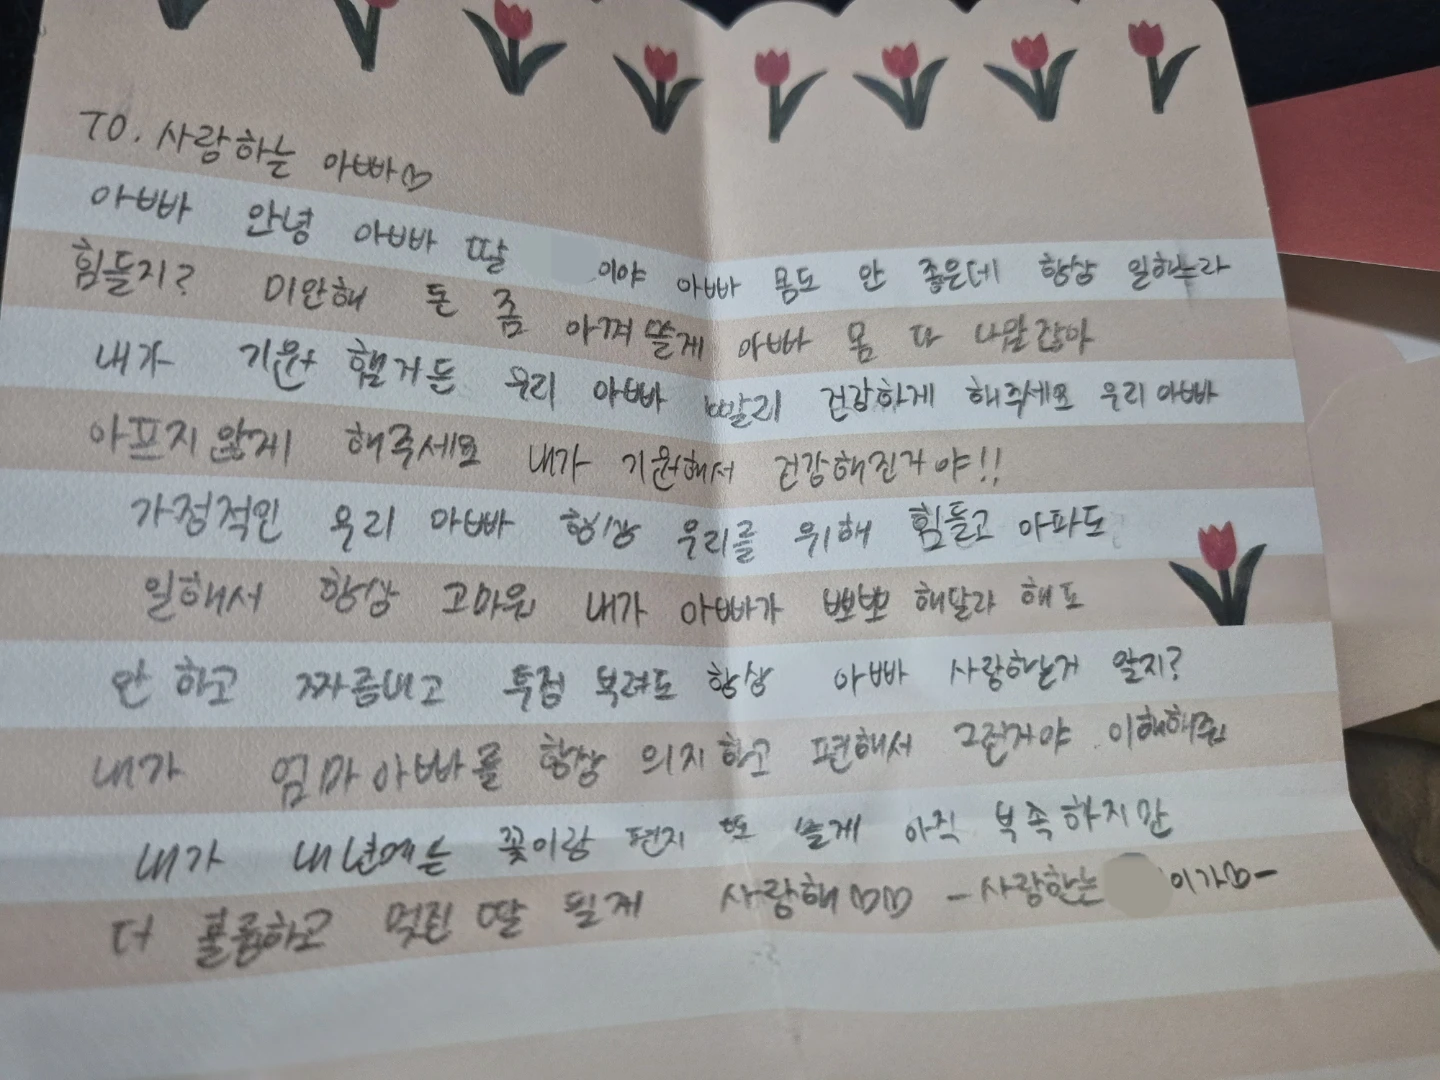 TO. 사랑하는 아빠♡
아빠 안녕 아빠 딸 이야 아빠 몸도 안 좋은데 항상 일하느라
힘들지? 미안해 돈 좀 아껴쓸게 아빠 몸 다 나았잖아
내가 기원했거든 우리 아빠 빨리 건강하게 해주세요 우리 아빠
아프지 않게 해주세요 내가 기원해서 건강해진거야!!
가정적인 우리 아빠 항상 우리를 위해 힘들고 아파도
일해서 항상 고마워 내가 아빠가 뽀뽀 해달라 해도
안 하고 짜증내고 투정 부려도 항상 아빠 사랑하는거 알지?
내가 엄마아빠를 항상 의지하고 편해서 그런거야 이해해줘
내가 내년에는 꽃이랑 편지 또 쓸게 아직 부족하지만
더 훌륭하고 멋진 딸 될게 사랑해♡♡ -사랑하는 이가♡-